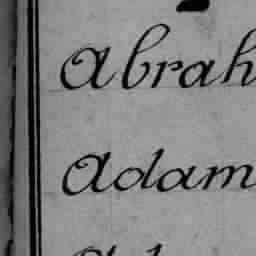 Abrah
Adam